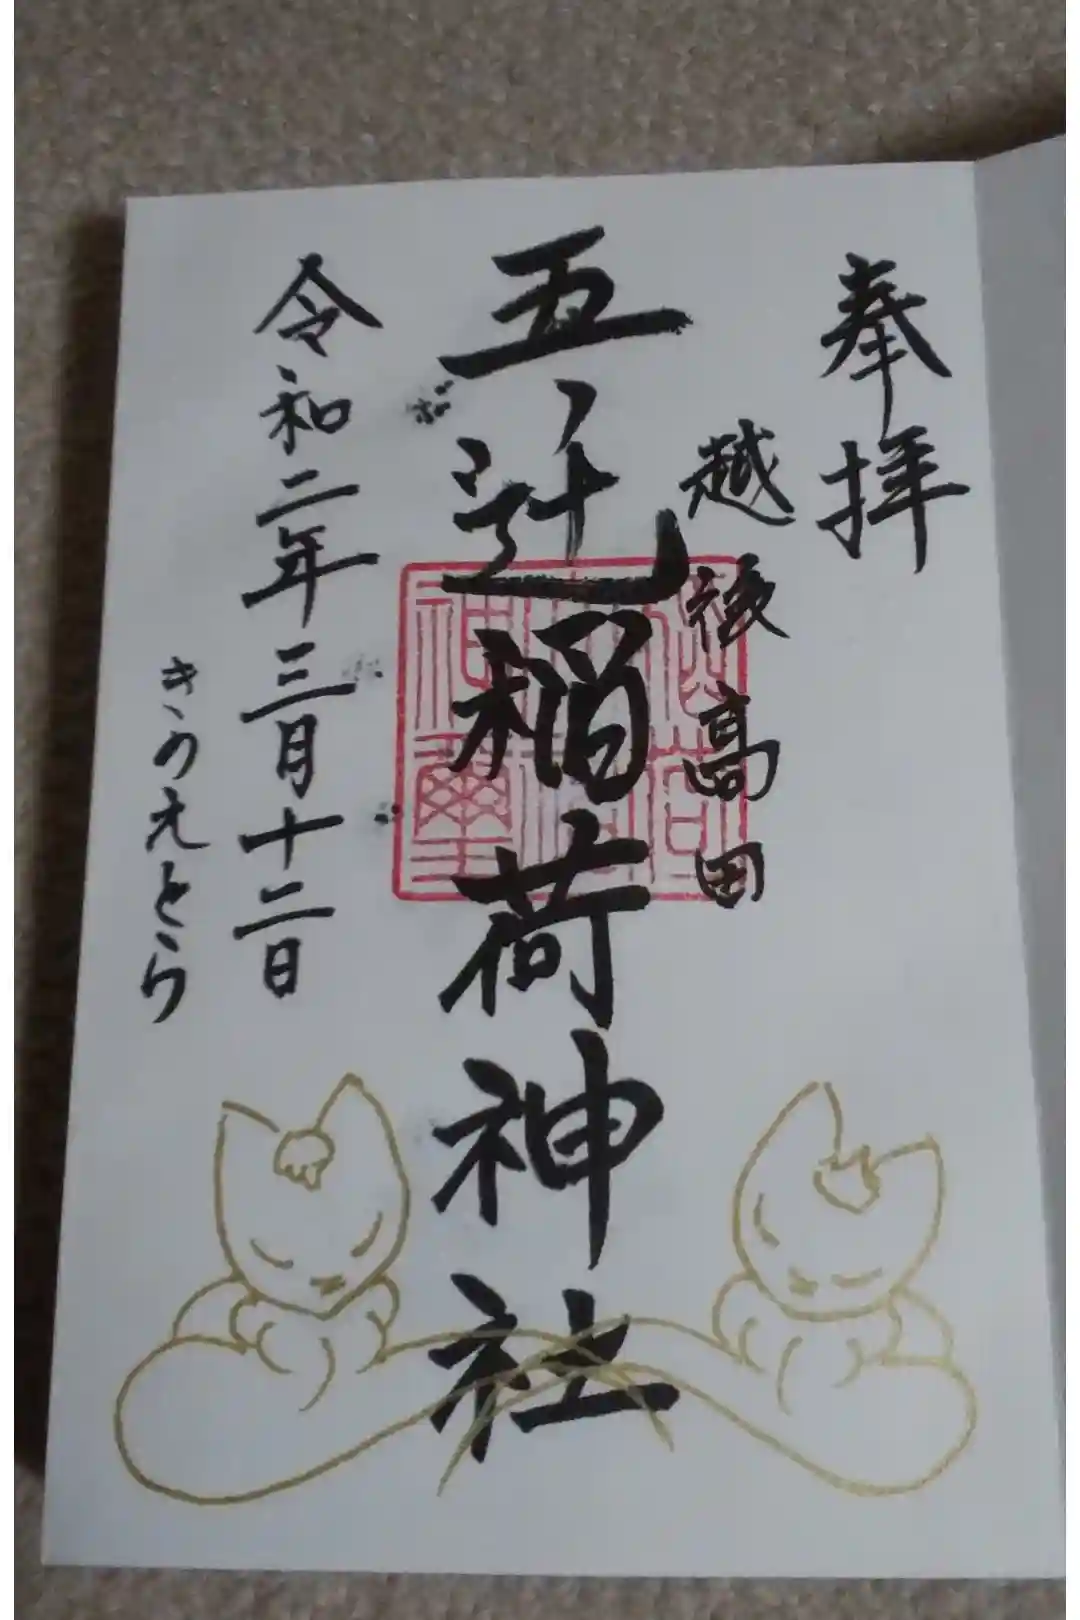 奉拝
越後高田
五ノ辻稲荷神社
令和二年三月十二日
きのえとら